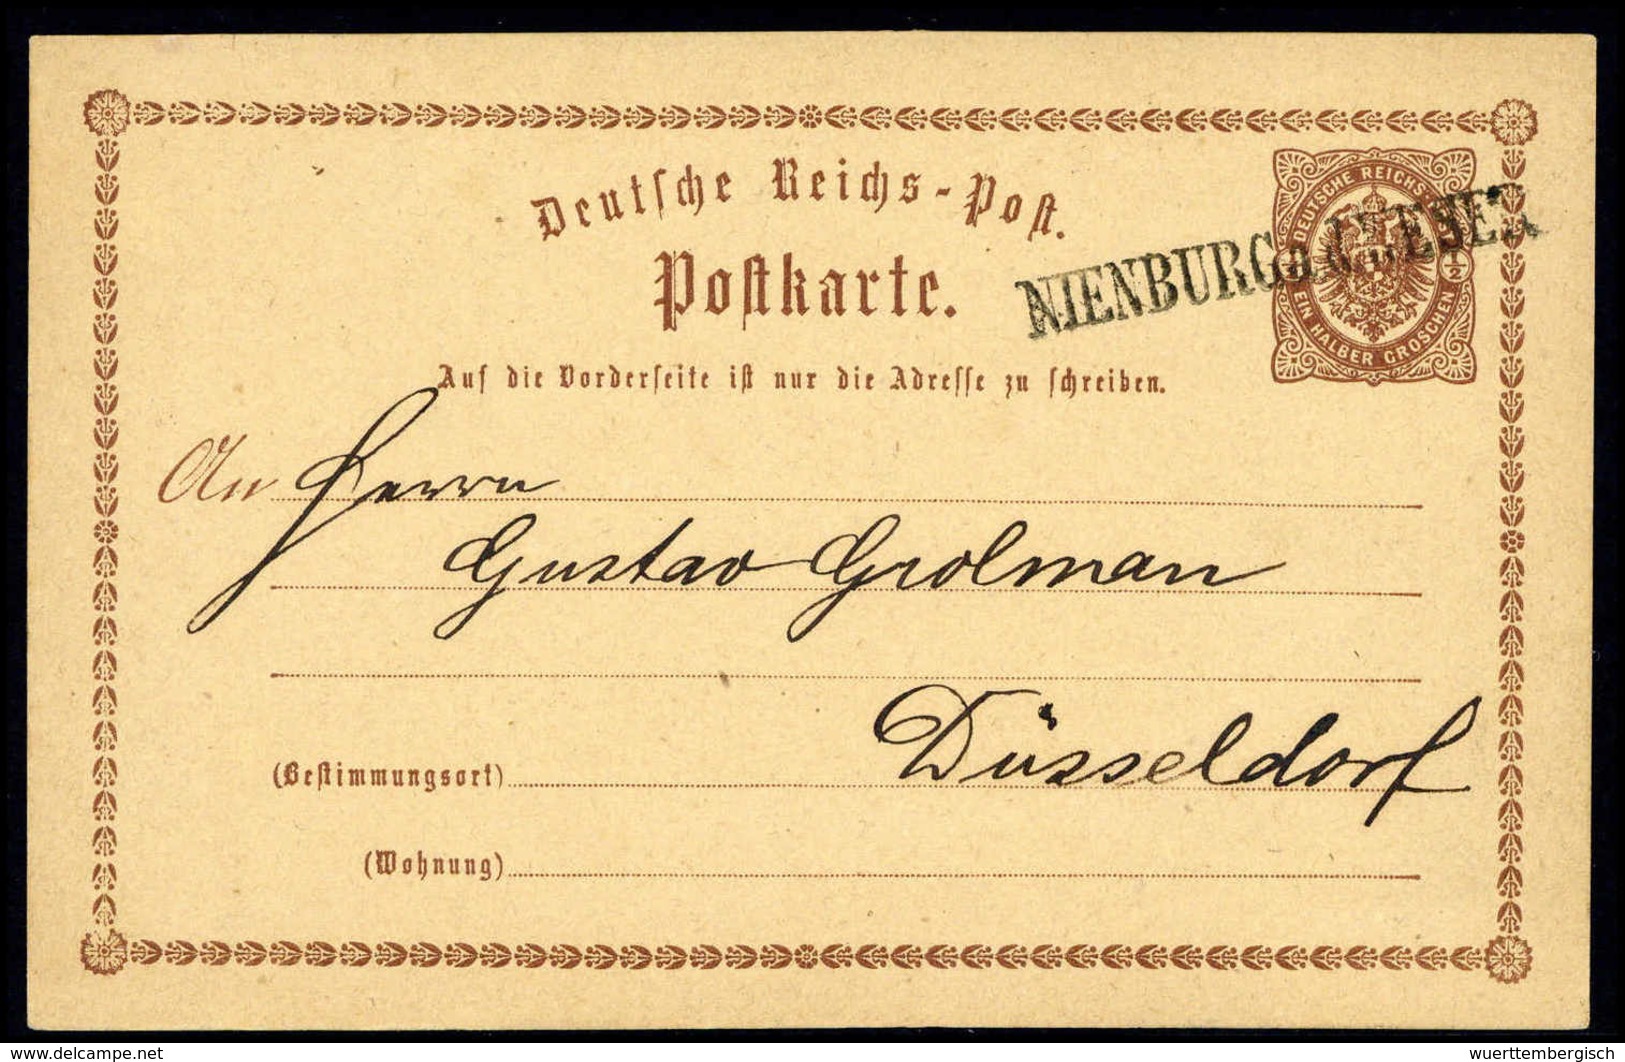 Deutsche Reichs-Post.
Postkarte.
NIENBURG a. d. WESER
DEUTSCHE REICHSPOST
½ ½
EIN HALBER GROSCHEN
Auf die Vorderseite ist nur die Adresse zu schreiben.
An Herrn
Gustav Grolman
Düsseldorf
(Bestimmungsort)
(Wohnung)
www.delcampe.net
wuerttembergisch